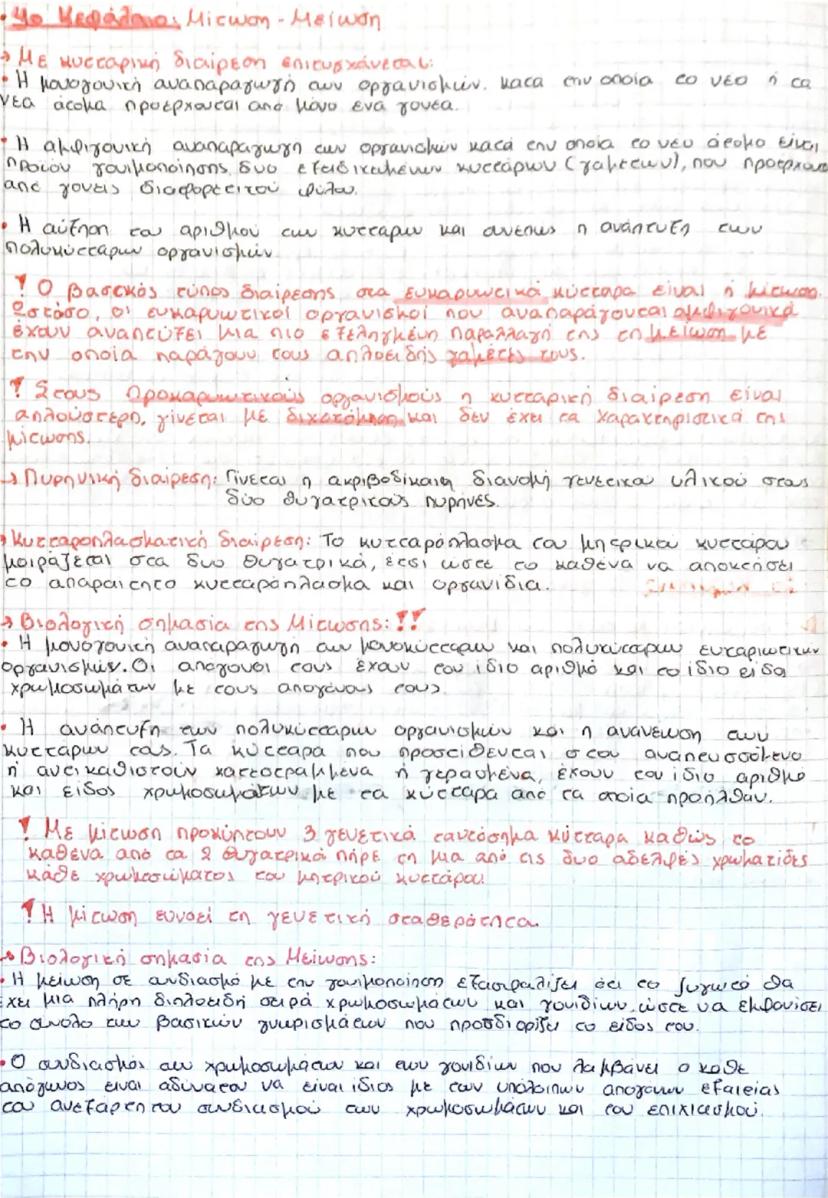 • 4ο Κεφάλαιο: Μίτωση - Μείωση
→ Με κυτταρική διαίρεση επιτυγχάνεται:
• Η μονογονική αναπαραγωγή των οργανισμών. κατα την οποία το νέο ή τα
νέα άτομα προέρχονται από μόνο ένα γονέα.
• Η αμφιγονική αναπαραγωγή των οργανισμών κατά την οποία το νέο άτομο είναι
προϊόν γονιμοποίησης δυο εξειδικευμένων κυττάρων (γαμετών), που προέρχονται
από γονείς διαφορετικού φύλου.
• Η αύξηση του αριθμού των κυττάρων και συνεπώς η ανάπτυξη των
πολυκύτταρων οργανισμών
! Ο βασικός τύπος διαίρεσης στα ευκαρυωτικά κύτταρα είναι η μίτωση.
Ωστόσο, οι ευκαρυωτικοί οργανισμοί που αναπαράγονται αμφιγονικά
έχουν αναπτύξει μια πιο εξελιγμένη παραλλαγή της τη μείωση με
την οποία παράγουν τους απλοειδής γαμέτες τους.
! Στους Προκαρυωτικούς οργανισμούς η κυτταρική διαίρεση είναι
απλούστερη, γίνεται με διχοτόμηση και δεν έχει τα χαρακτηριστικά της
μίτωσης.
→ Πυρηνική διαίρεση: Γίνεται η ακριβοδίκαιη διανομή γενετικού υλικού στους
δύο θυγατρικούς πυρήνες.
→ Κυτταροπλασματική διαίρεση: Το κυτταρόπλασμα του μητρικού κυττάρου
μοιράζεται στα δυο θυγατρικά, έτσι ώστε το καθένα να αποκτήσει
το απαραίτητο κυτταρόπλασμα και οργανίδια.
→ Βιολογική σημασία της Μίτωσης: !!
• Η μονογονική αναπαραγωγή των μονοκύτταρων και πολυκύτταρων ευκαριωτικών
οργανισμών. Οι απόγονοι τους έχουν τον ίδιο αριθμό και το ίδιο είδος
χρωμοσωμάτων με τους απογόνους τους.
• Η ανάπτυξη των πολυκύτταρων οργανισμών και η ανανέωση των
κυττάρων τους. Τα κύτταρα που προστίθενται στον αναπτυσσόμενο
ή αντικαθιστούν κατεστραμμένα ή γερασμένα, έχουν τον ίδιο αριθμό
και είδος χρωμοσωμάτων με τα κύτταρα από τα οποία προήλθαν.
! Με μίτωση προκύπτουν 3 γενετικά ταυτόσημα κύτταρα καθώς το
καθένα από τα 2 θυγατρικά πήρε τη μια από τις δυο αδελφές χρωματίδες
κάθε χρωμοσώματος του μητρικού κυττάρου.
! Η μίτωση ευνοεί τη γενετική σταθερότητα.
→ Βιολογική σημασία της Μείωσης:
• Η μείωση σε συνδιασμό με την γονιμοποίηση εξασφαλίζει ότι το ζυγωτό θα
έχει μια πλήρη διπλοειδή σειρά χρωμοσωμάτων και γονιδίων, ώστε να εμφανίσει
το σύνολο των βασικών γνωρισμάτων που προσδιορίζει το είδος του.
• Ο συνδιασμός των χρωμοσωμάτων και των γονιδίων που λαμβάνει ο κάθε
απόγωνος είναι αδύνατον να είναι ίδιος με των υπόλοιπων απογόνων εξαιτείας
του ανεξάρτητου συνδιασμού των χρωμοσωμάτων και του επιχιασμού.